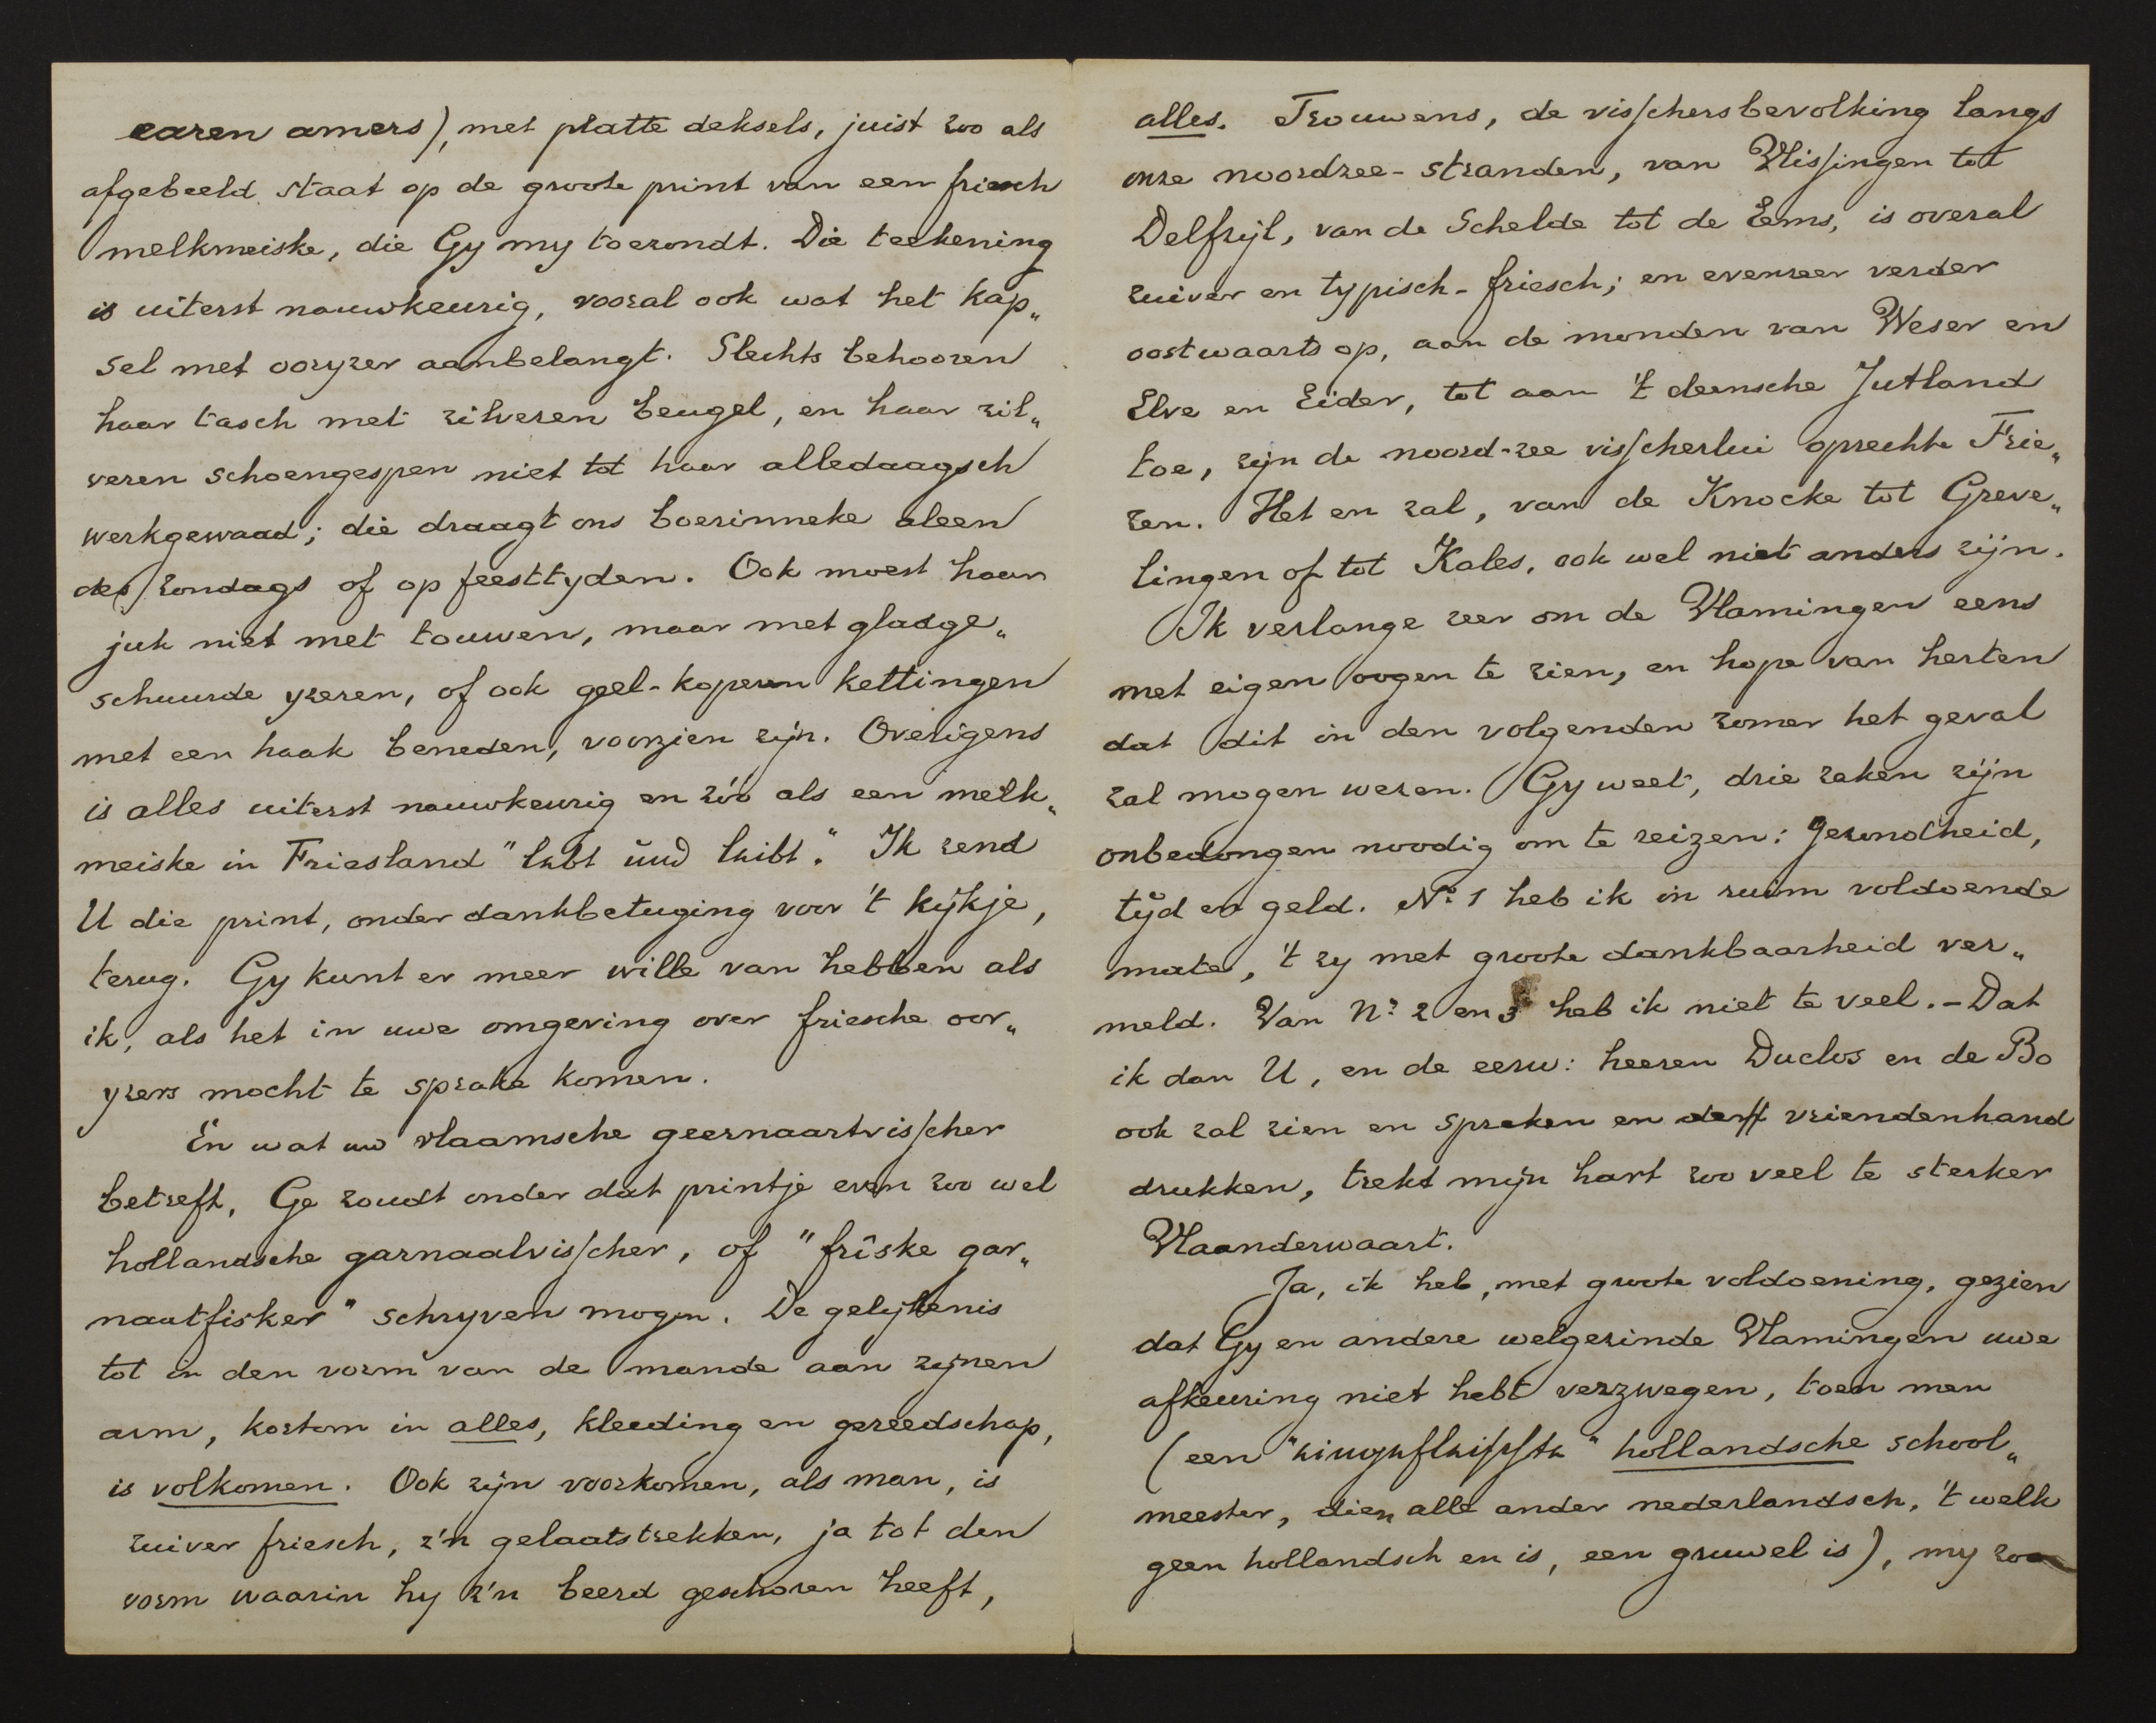 earen amers), met platte deksels, juist zoo als
afgebeeld staat op de groote print van een friesch
melkmeiske, die Gy my toezondt. Die teekening
is uiterst nauwkeurig, vooral ook wat het kap„
sel met ooryzer aanbelangt. Slechts behooren
haar tasch met zilveren beugel, en haar zil„
veren schoengespen niet tot haar alledaagsch
werkgewaad; die draagt ons boerinneke aleen
des zondags of op feesttyden. Ook moest haar
juk niet met touwen, maar met gladge„
schuurde yzeren, of ook geel-koperen kettingen
met een haak beneden, voorzien zijn. Overigens
is alles uiterst nauwkeurig en zóó als een melk„
meiske in Friesland "lebt und leibt." Ik zend
U die print, onder dankbetuging voor 't kijkje,
terug. Gy kunt er meer wille van hebben als
ik, als het in uwe omgeving over friesche oor„
yzers mocht te sprake komen.
En wat uw vlaamsche geernaartvisscher
betreft, Ge zoudt onder dat printje even zoo wel
hollandsche garnaalvisscher, of "frîske gar„
naatfisker" schryven mogen. De gelijkenis
tot in den vorm van de mande aan zynen
arm, kortom in alles, kleeding en gereedschap,
is volkomen. Ook zijn voorkomen, als man, is
zuiver friesch, z'n gelaatstrekken, ja tot den
vorm waarin hy z'n beerd geschoren heeft,
alles. Trouwens, de visschersbevolking langs
onze noordzee-stranden, van Vlissingen tot
Delfzijl, van de Schelde tot de Eems, is overal
zuiver en typisch-friesch; en evenzeer verder
oostwaarts op, aan de monden van Weser en
Elve en Eider, tot aan 't deensche Jutland
toe, zijn de noord-zee visscherlui oprechte Frie„
zen. Het en zal, van de Knocke tot Greve„
lingen of tot Kales, ook wel niet anders zijn.
Ik verlange zeer om de Vlamingen eens
met eigen oogen te zien, en hope van herten
dat dit in den volgenden zomer het geval
zal mogen wezen. Gy weet, drie zaken zijn
onbedongen noodig om te reizen: gezondheid,
tijd en geld. No 1 heb ik in ruim voldoende
mate, 't zy met groote dankbaarheid ver„
meld. Van No 2 en 3 heb ik niet te veel. - Dat
ik dan U, en de eerw: heeren Duclos en de Bo
ook zal zien en spreken en de vriendenhand
drukken, trekt mijn hart zoo veel te sterker
Vlaanderwaart.
Ja, ik heb, met groote voldoening, gezien
dat Gy en andere welgezinde Vlamingen uwe
afkeuring niet hebt verzwegen, toen men
(een "eingefleischte" hollandsche school„
meester, dien alle ander nederlandsch, 't welk
geen hollandsch en is, een gruwel is), my zoo